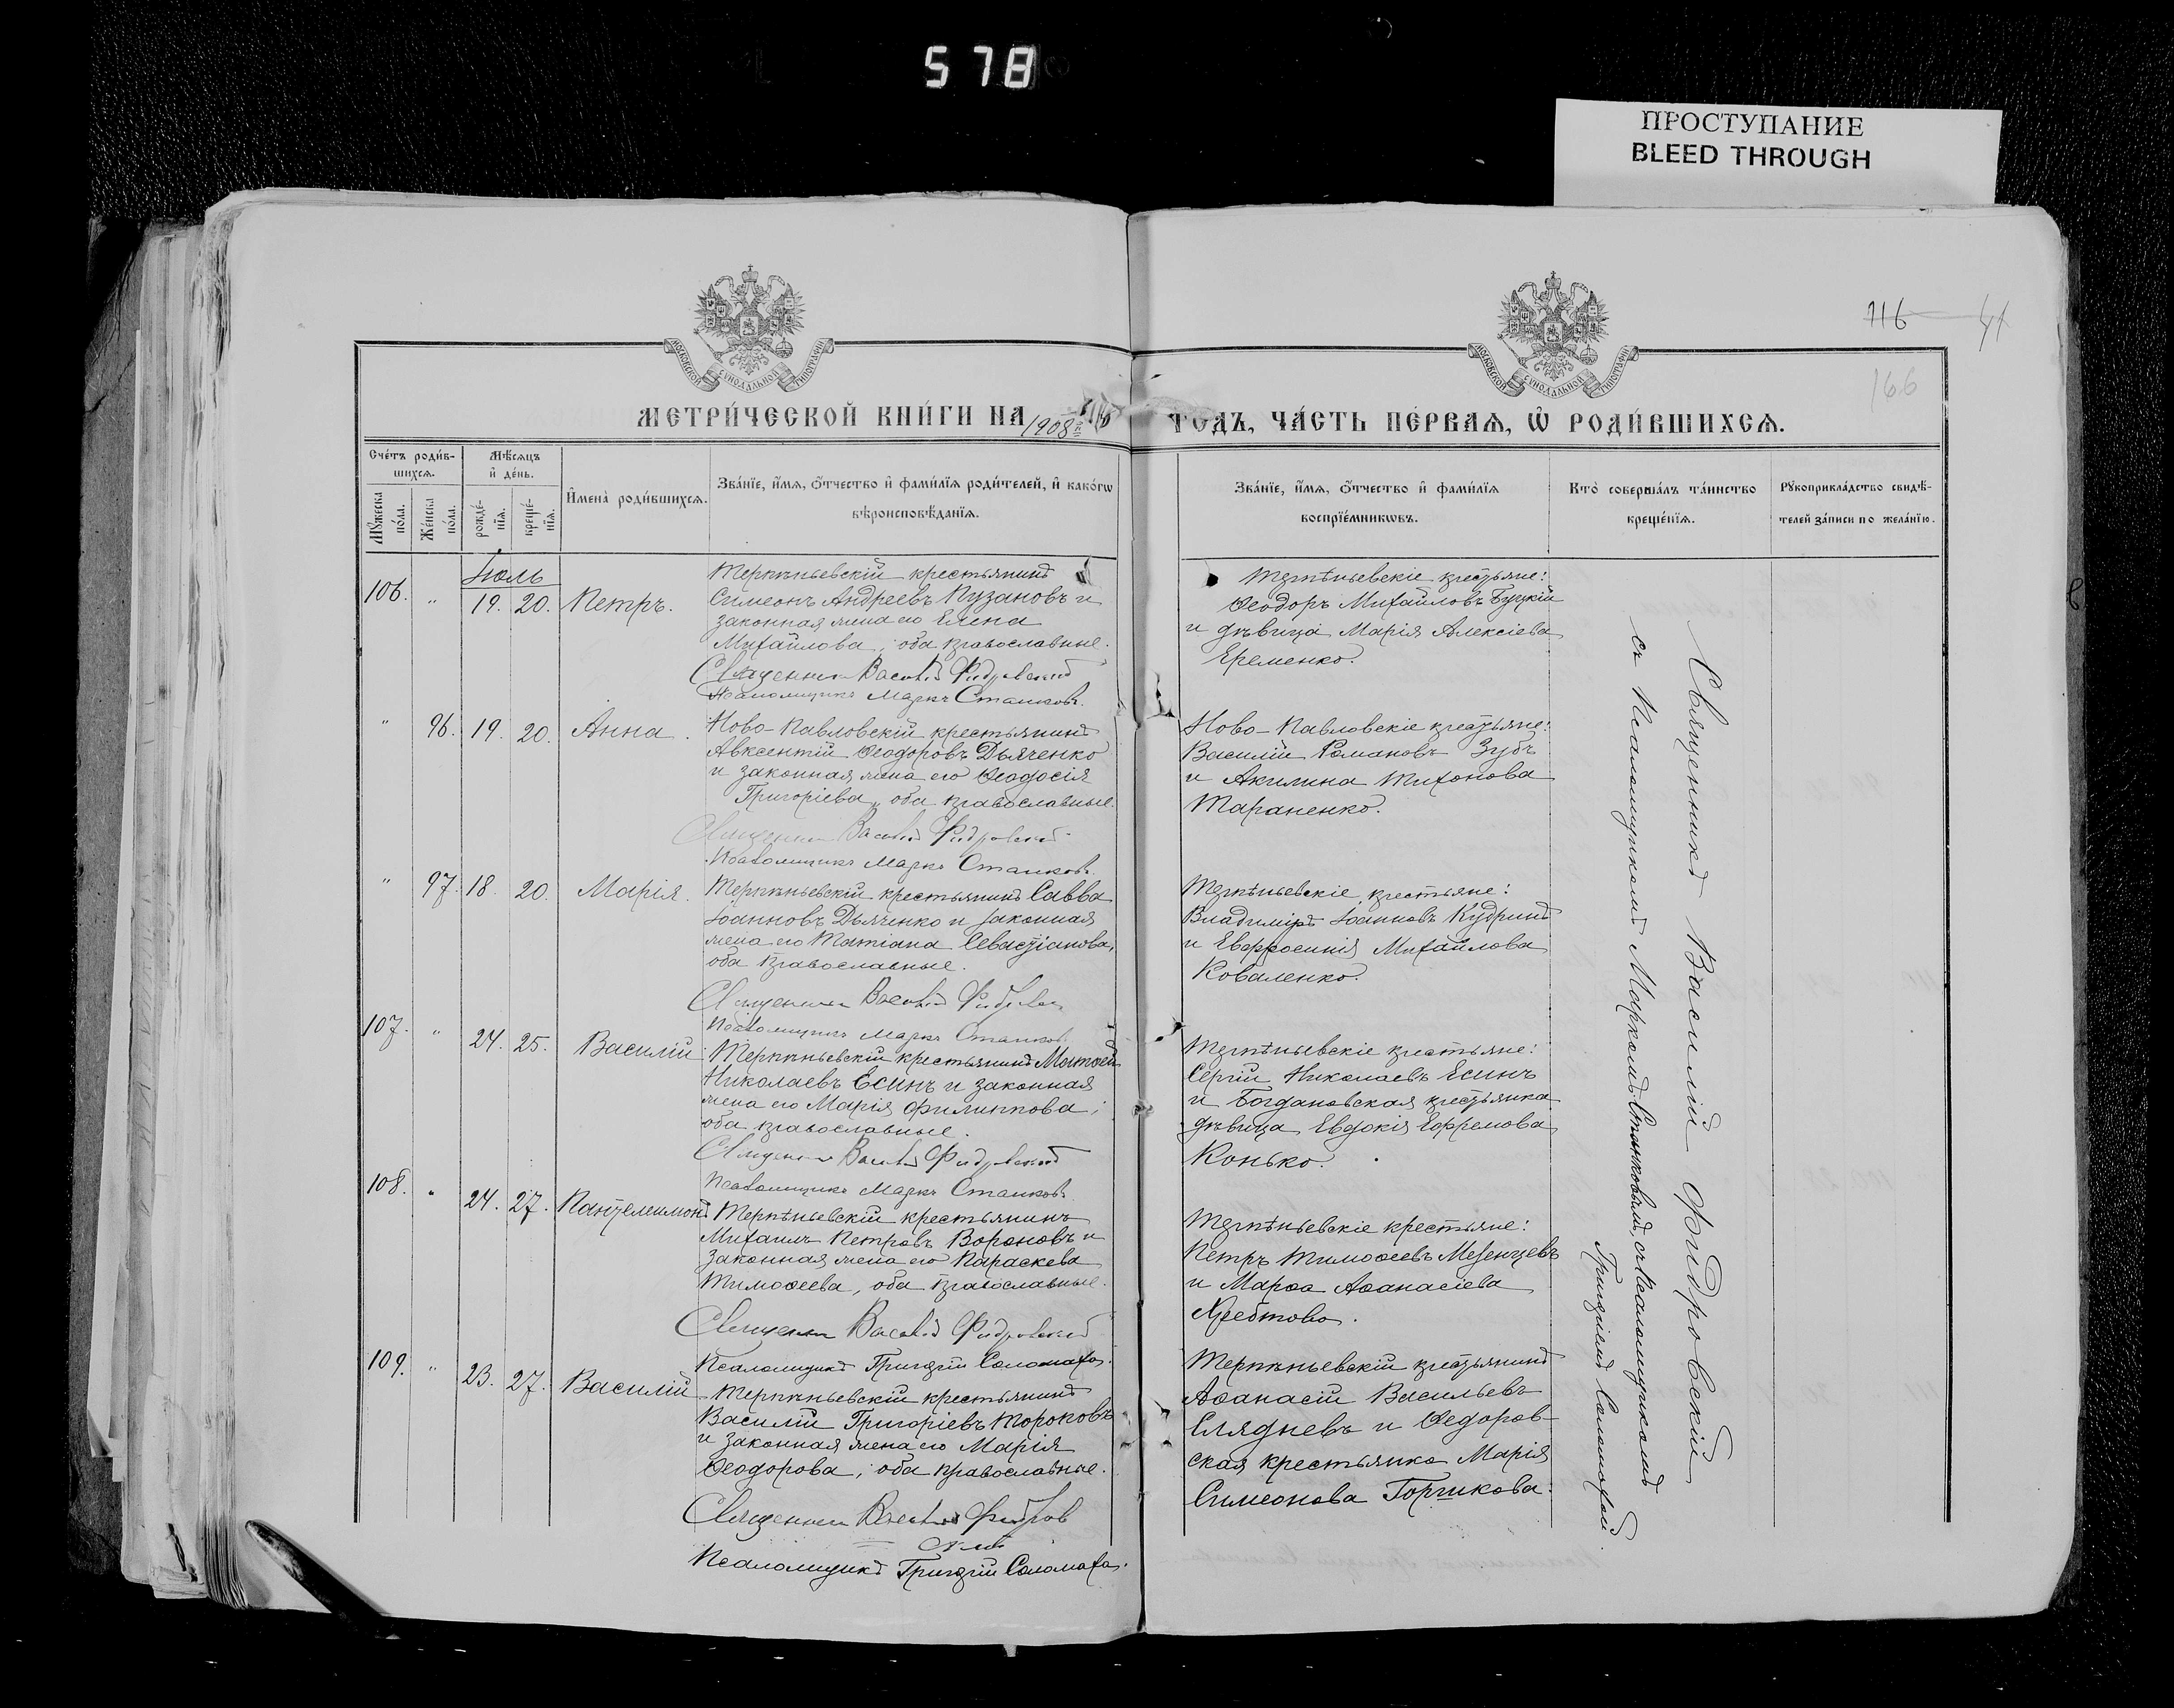 578
ПРОСТУПАНИЕ
BLEED THROUGH
116 41
166
МОСКОВСКОЙ СѴНОДАЛЬНОЙ ТИПОГРАФІИ
МОСКОВСКОЙ СѴНОДАЛЬНОЙ ТИПОГРАФІИ
МЕТРИ́ЧЕСКОЙ КНИ́ГИ НА 1908 й ГОДЪ, ЧА́СТЬ ПЕ́РВАѦ, Ѡ҆ РОДИ́ВШИХСѦ.
Сче́тъ роди́в-
шихсѧ.
Мꙋ́жеска по́ла.
Же́нска по́ла.
Мѣ́сѧцъ
и҆ де́нь.
рожде́-
нїѧ.
креще́-
нїѧ.
И҆мена̀ роди́вшихсѧ.
Зва́нїе, и҆́мѧ, ѻ҆́тчество и҆ фами́лїѧ роди́телей, и҆ како́гѡ
вѣроисповѣ́данїѧ.
Зва́нїе, и҆́мѧ, ѻ҆́тчество и҆ фами́лїѧ
воспрїе́мникѡвъ.
Кто̀ соверша́лъ та́инство
креще́нїѧ.
Рꙋкоприкла́дство свидѣ́-
телей за́писи по жела́нїю.
Іюль
106. " 19. 20. Петръ.
Терпѣньевскій крестьянинъ
Симеонъ Андреевъ Пузановъ и
законная жена его Елена
Михайлова; оба православные.
Священникъ Василій Фидровскій
Псаломщикъ Маркъ Станковъ.
Терпѣньевскіе крестьяне:
Ѳеодоръ Михайловъ Буцкій
и дѣвица Марія Алексіева
Еременко.
" 96. 19. 20. Анна.
Ново-Павловскій крестьянинъ
Авксентій Ѳеодоровъ Дьяченко
и законная жена его Ѳеодосія
Григоріева, оба православные.
Священникъ Василій Фидровскій
Псаломщикъ Маркъ Станковъ.
Ново-Павловскіе крестьяне:
Василій Романовъ Зубъ
и Акилина Тихонова
Тараненко.
" 97. 18. 20. Марія.
Терпѣньевскій крестьянинъ Савва
Іоанновъ Дьяченко и законная
жена его Татіана Севастіанова,
оба православные.
Священникъ Василій Фидровскій
Псаломщикъ Маркъ Станковъ
Терпѣньевскіе крестьяне:
Владиміръ Іоанновъ Кудринъ
и Евфросинія Михайлова
Коваленко.
107. " 24. 25. Василій
Терпѣньевскій крестьянинъ Матѳей
Николаевъ Есинъ и законная
жена его Марія Филиппова;
оба православные.
Священникъ Василій Фидровскій
Псаломщикъ Маркъ Станковъ.
Терпѣньевскіе крестьяне:
Сергій Николаевъ Есинъ
и Богдановская крестьянка
дѣвица Евдокія Ефремова
Конько.
108. " 24. 27. Пантелеимонъ
Терпѣньевскій крестьянинъ
Михаилъ Петровъ Вороновъ и
законная жена его Параскева
Тимоѳеева, оба православные.
Священникъ Василій Фидровскій
Псаломщикъ Григорій Соломаха.
Терпѣньевскіе крестьяне:
Петръ Тимоѳеевъ Мезенцевъ
и Марѳа Аѳанасіева
Хребтова.
109. " 23. 27. Василій
Терпѣньевскій крестьянинъ
Василій Григоріевъ Тороповъ
и законная жена его Марія
Ѳеодорова; оба православные.
Священникъ Василій Фидров
скій
Псаломщикъ Григорій Соломаха.
Терпѣньевскій крестьянинъ
Аѳанасій Васильевъ
Слядневъ и Ѳедоров-
ская крестьянка Марія
Симеонова Горшкова.
Священникъ Василій Фидровскій
съ Псаломщикомъ Маркомъ Станковымъ, съ Псаломщикомъ
Григоріемъ Соломахой.